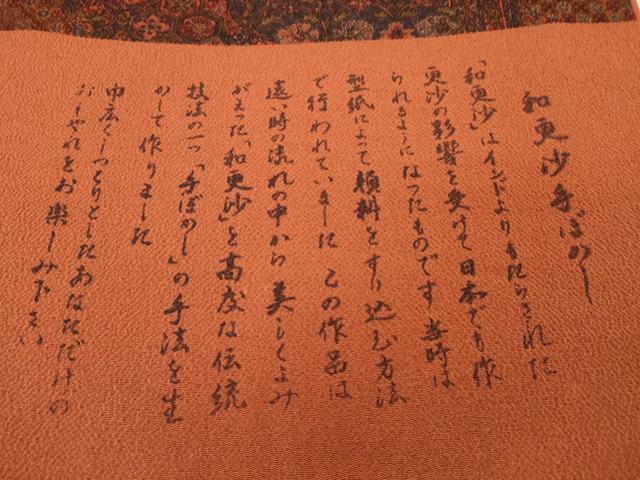 和更沙手ぼかし
「和更沙」はインドよりもたらされた
更沙の影響を受けて日本でも作
られるようになったものです 当時は
型紙によって顔料をすり込む方法
で行われていました この作品は
遠い時の流れの中から美しくよみ
がえった「和更沙」を高度な伝統
技法の一つ「手ぼかし」の手法を生
かして作りました
巾広くしっとりとしたあなただけの
おしゃれをお楽しみ下さい